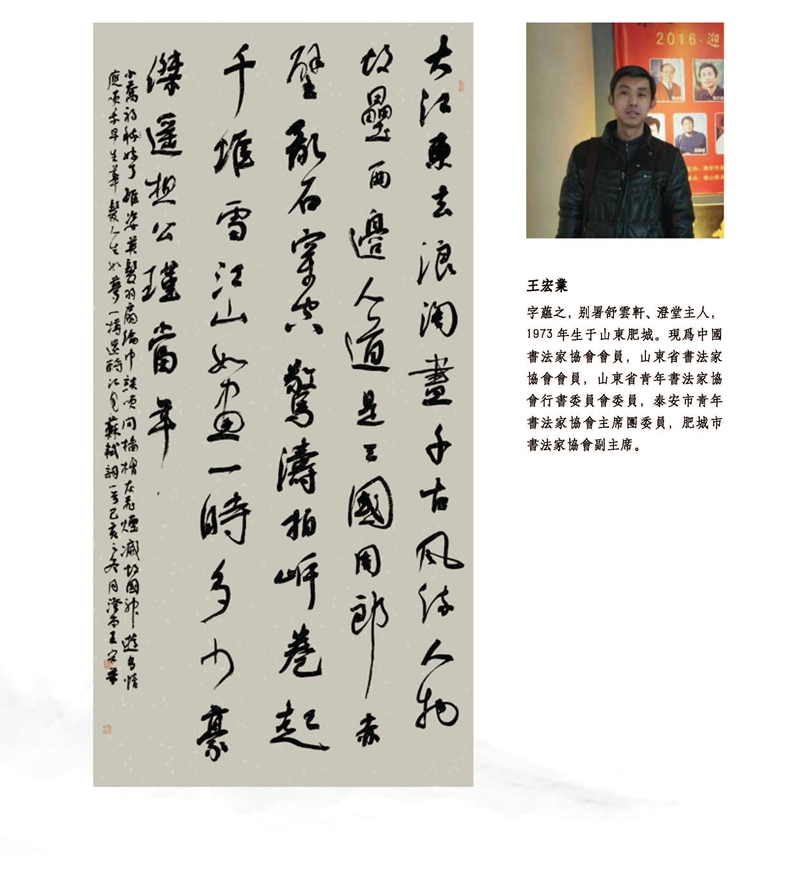 大江東去浪淘盡千古風流人物
故壘西邊人道是三國周郎赤
壁亂石穿空驚濤拍岸捲起
千堆雪江山如畫一時多少豪
傑遥想公瑾當年
小喬初嫁了雄姿英發羽扇綸巾談笑間檣櫓灰飛煙滅故國神遊多情
應笑我早生華髮人生如夢一樽還酹江月蘇軾詞一首己亥之冬月澄堂王宏業
2016·迎
王宏業
字蘊之，别署舒雲軒、澄堂主人，
1973年生于山東肥城。現爲中國
書法家協會會員，山東省書法家
協會會員，山東省青年書法家協
會行書委員會委員，泰安市青年
書法家協會主席團委員，肥城市
書法家協會副主席。